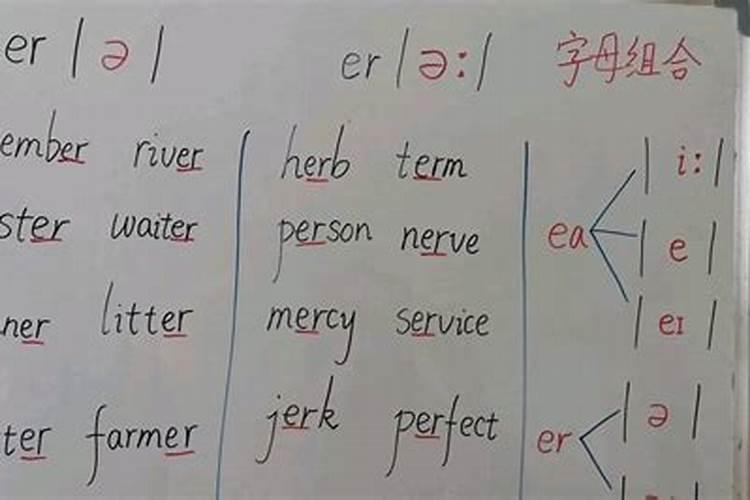 er |ə| er |ə:| 字母组合
ember river herb term |i:|
ster waiter person nerve ea |e|
ner litter mercy service |eɪ|
ter farmer jerk perfect er |ə|